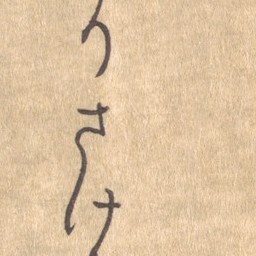 りさけ